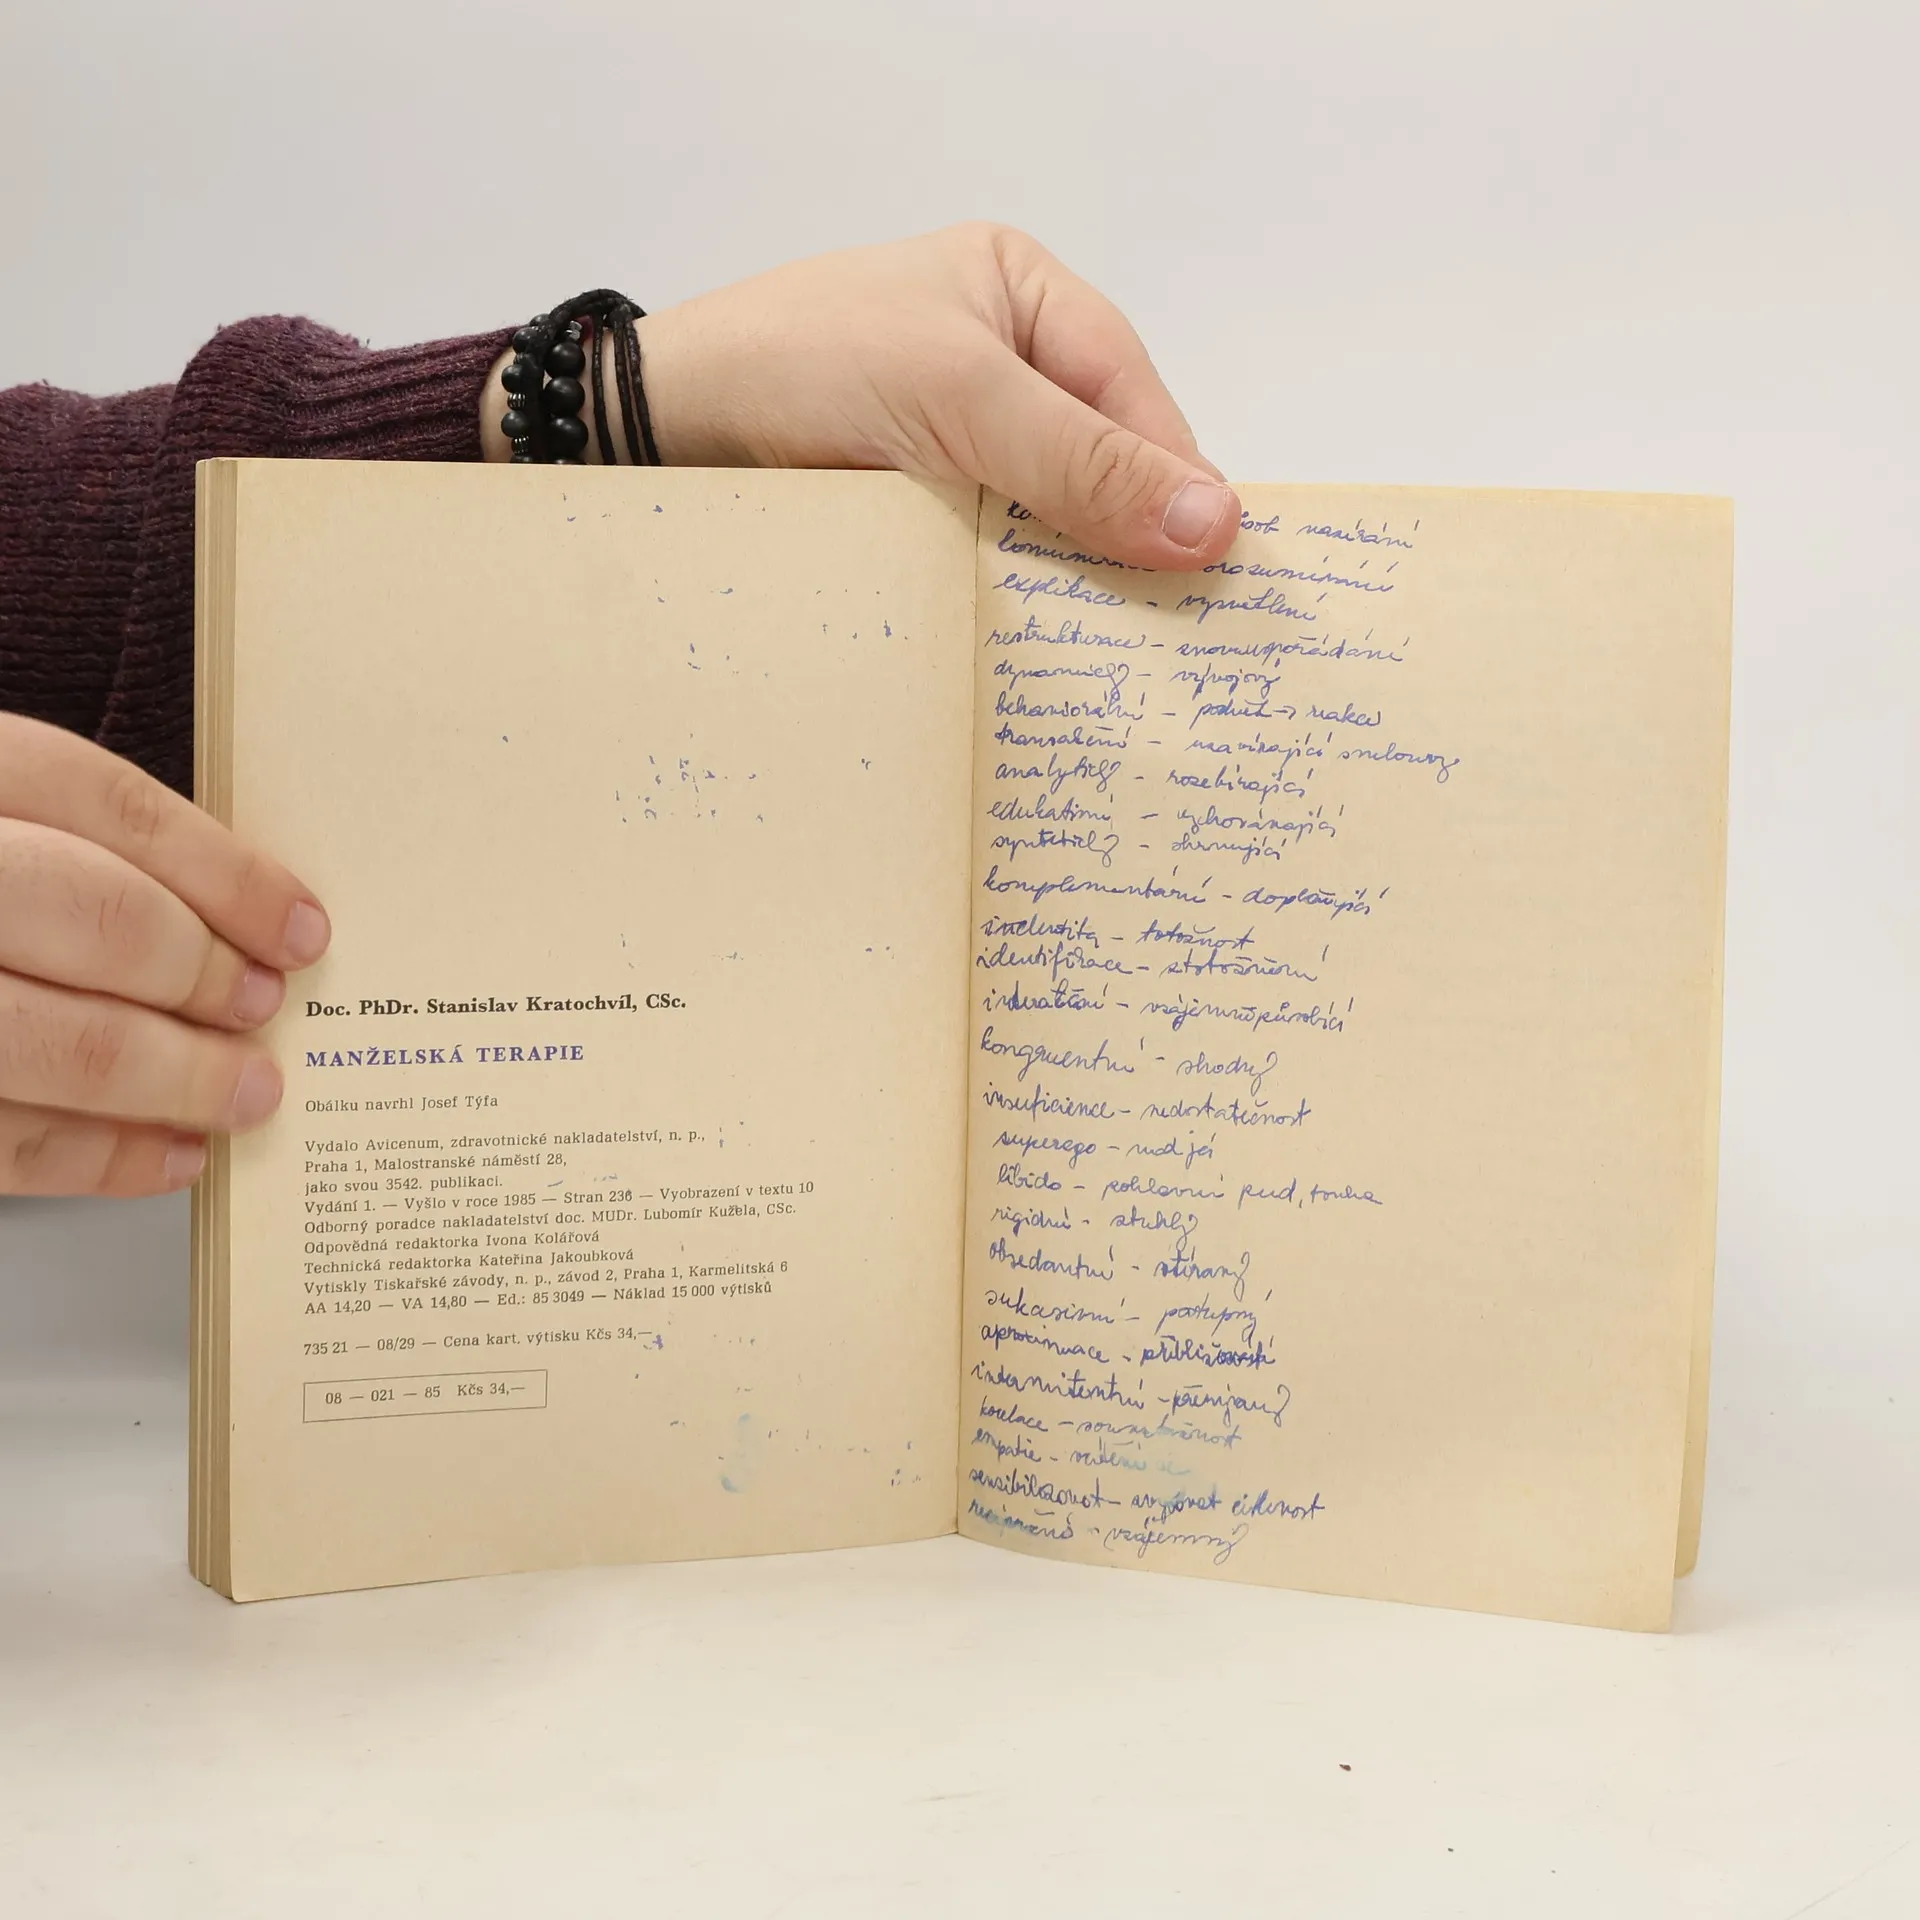 Doc. PhDr. Stanislav Kratochvíl, CSc.
MANŽELSKÁ TERAPIE
Obálku navrhl Josef Týfa
Vydalo Avicenum, zdravotnické nakladatelství, n. p.,
Praha 1, Malostranské náměstí 28,
jako svou 3542. publikaci.
Vydání 1. — Vyšlo v roce 1985 — Stran 236 — Vyobrazení v textu 10
Odborný poradce nakladatelství doc. MUDr. Lubomír Kužela, CSc.
Odpovědná redaktorka Ivona Kolářová
Technická redaktorka Kateřina Jakoubková
Vytiskly Tiskařské závody, n. p., závod 2, Praha 1, Karmelitská 6
AA 14,20 — VA 14,80 — Ed.: 85 3049 — Náklad 15 000 výtisků
735 21 — 08/29 — Cena kart. výtisku Kčs 34,—
08 — 021 — 85 Kčs 34,—
nazírání
explikace - vysvětlení
restrukturace - znovuuspořádání
dynamický - vývojový
behaviorální - podnět → reakce
uzavírající smlouvy
analytický - rozebírající
edukativní - vychovávající
syntetický - shrnující
komplementární - doplňující
totožnost
identifikace - ztotožnění
interakční - vzájemně působící
kongruentní - shodný
insuficience - nedostatečnost
superego - nad já
libido - pohlavní pud, touha
rigidní - ztuhlý
obsedantní - vtíravý
sukcesivní - postupný
aproximace -
intermitentní -
korelace - souvztažnost
empatie - vcítění se
sensibilizovat - citlivost
vzájemný